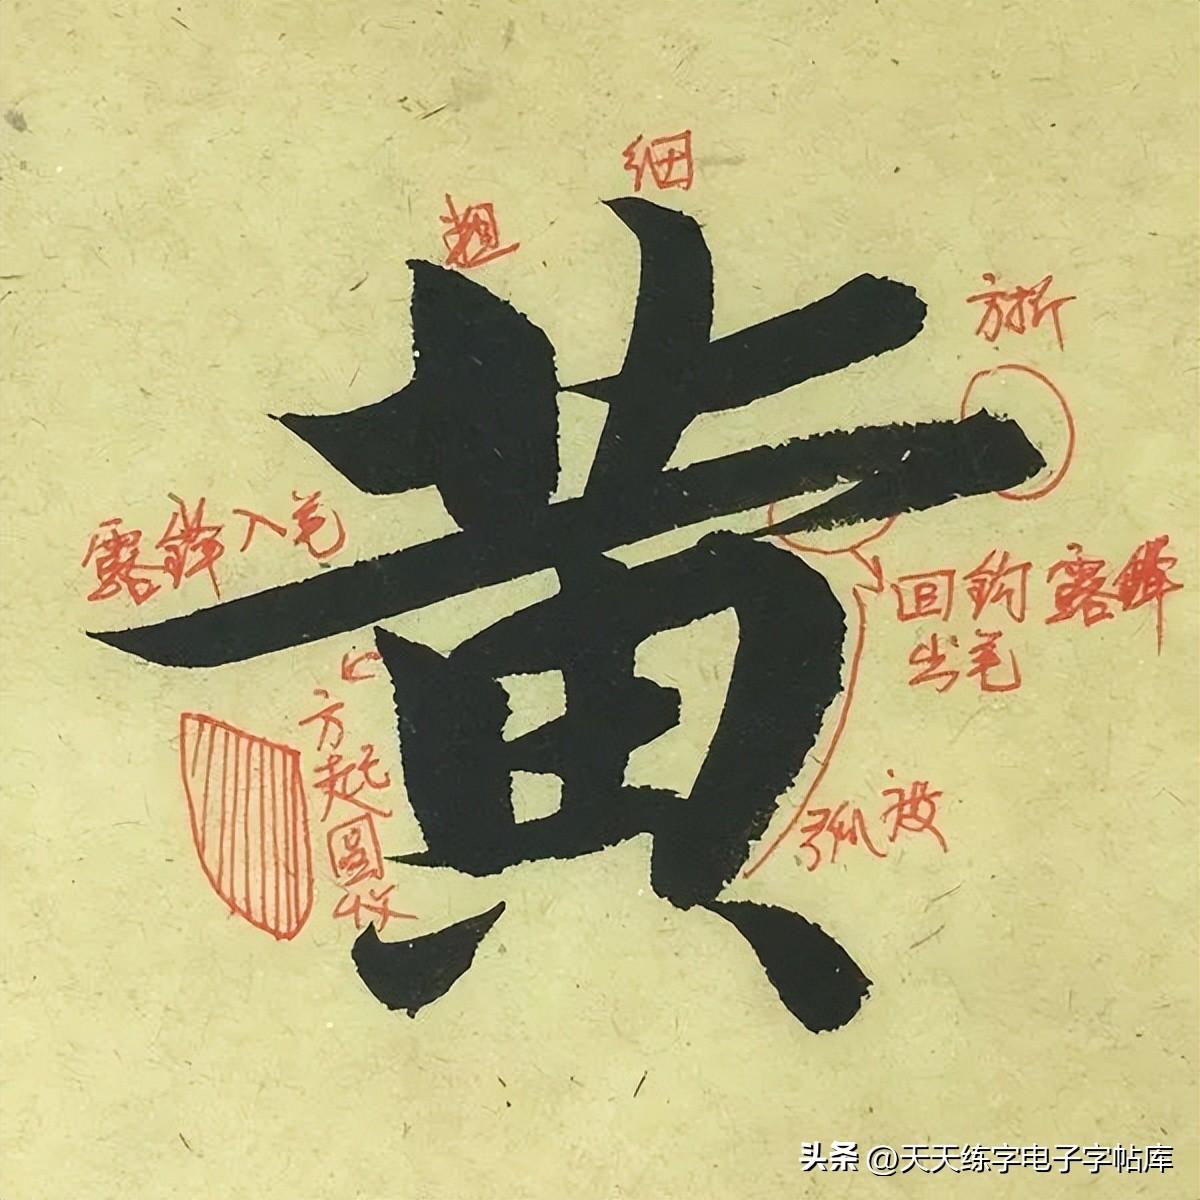 细
粗
方折
黄
露鋒入笔
回鈎露鋒
出笔
方起圆收
弧波
头条 @天天练字电子字帖库